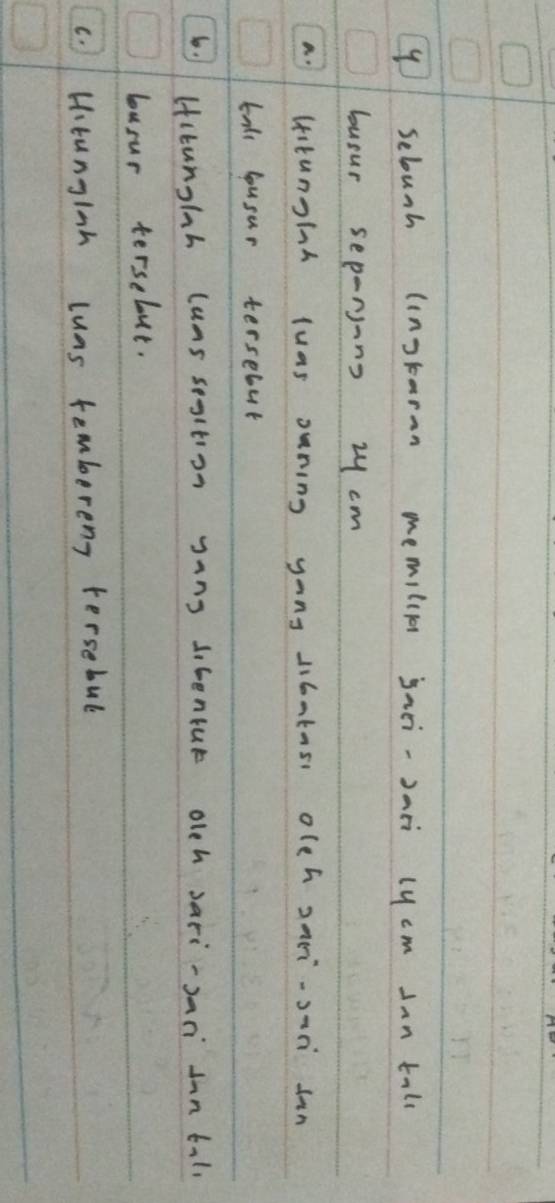 4 Sebuah lingkaran memiliki jari-jari 14 cm dan tali
busur sepanjang 24 cm
a. Hitunglah luas juring yang dibatasi oleh jari-jari dan
tali busur tersebut
b. Hitunglah luas segitiga yang dibentuk oleh jari-jari dan tali
busur tersebut.
c. Hitunglah luas tembereng tersebut